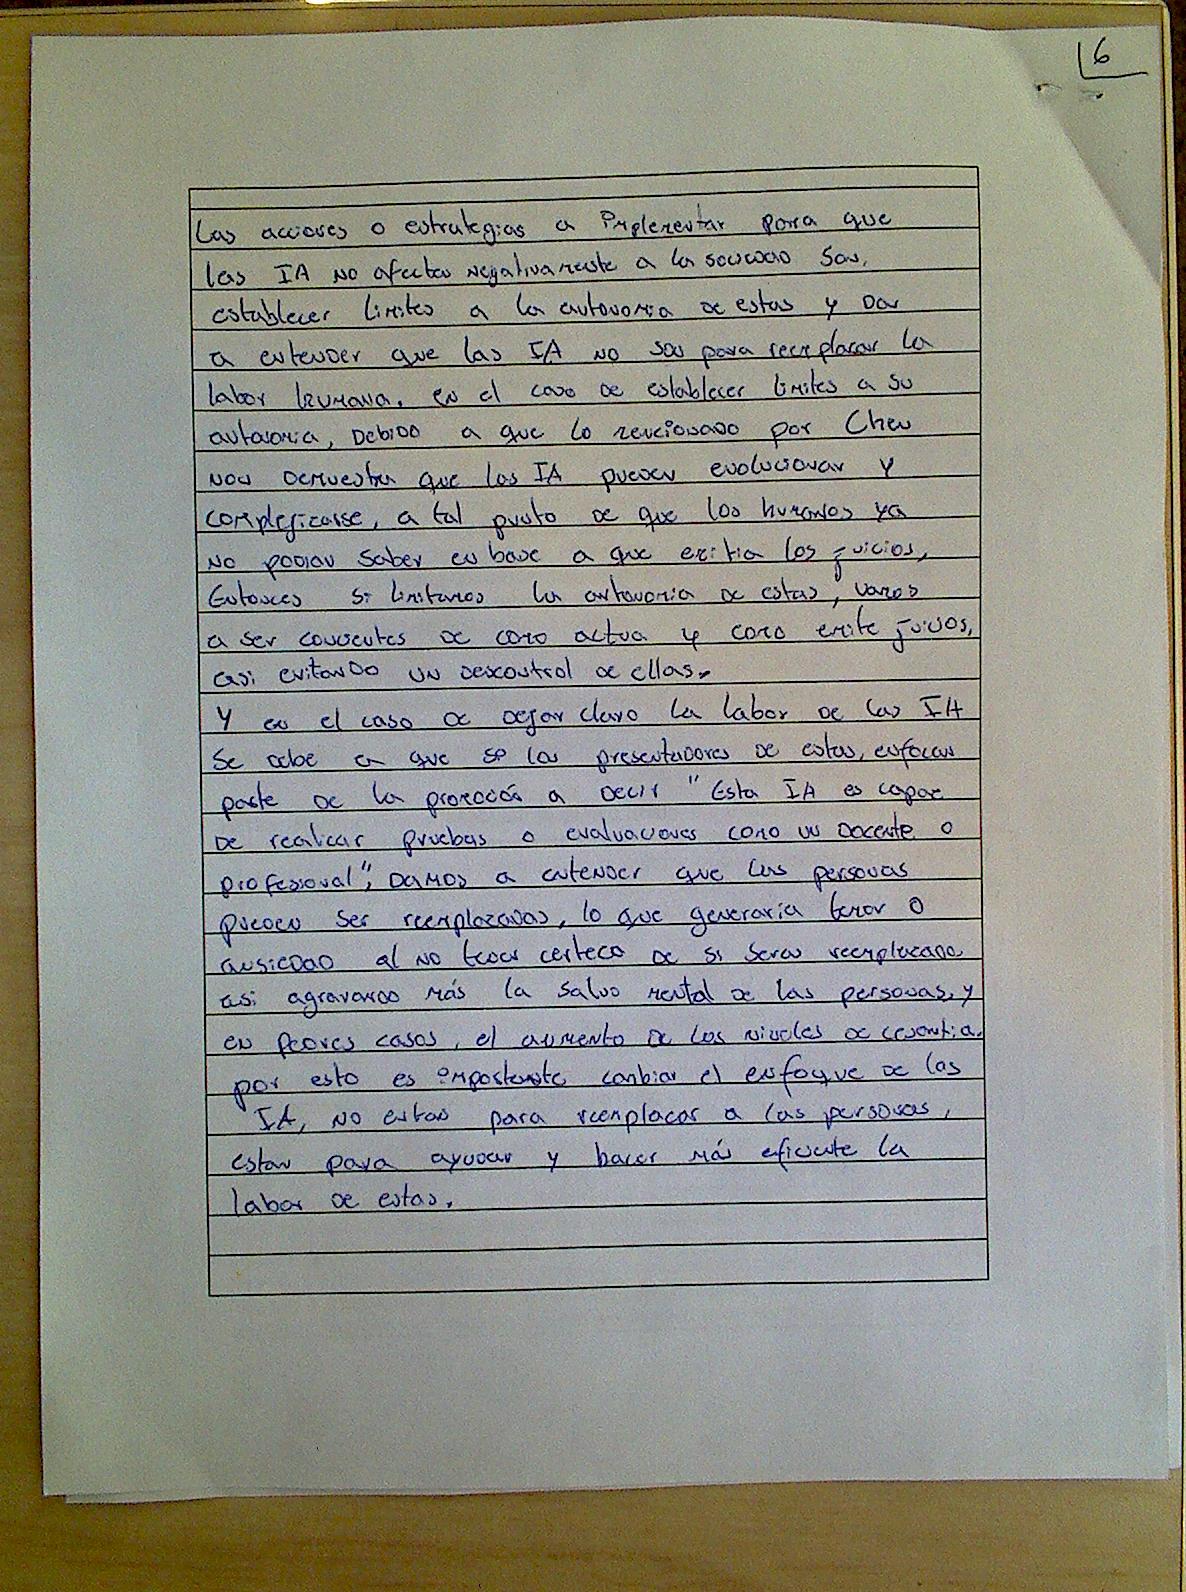 6
Las acciones o estrategias a implementar para que
las IA no afecten negativamente a la sociedad son,
establecer limites a la autonomia de estas y dar
a entender que las IA no son para reemplazar la
labor humana. en el caso de establecer limites a su
autonomia, debido a que lo mencionado por Chen
nos demuestra que las IA pueden evolucionar y
complejizarse, a tal punto de que los humanos ya
no podian saber en base a que emitia los juicios,
Entonces si limitamos la autonomia de estas, vamos
a ser conscientes de como actua y como emite juicios,
asi evitando un descontrol de ellas.
Y en el caso de dejar claro la labor de las IA
se debe a que si los presentadores de estas, enfocan
parte de la promoción a decir "Esta IA es capaz
de realizar pruebas o evaluaciones como un docente o
profesional", damos a entender que las personas
pueden ser reemplazadas, lo que generaría temor o
ansiedad al no tener certeza de si seras reemplazado
asi agravando más la salud mental de las personas, y
en peores casos, el aumento de los niveles de cesantia.
por esto es importante cambiar el enfoque de las
IA, no estan para reemplazar a las personas,
estan para ayudar y hacer más eficiente la
labor de estas.